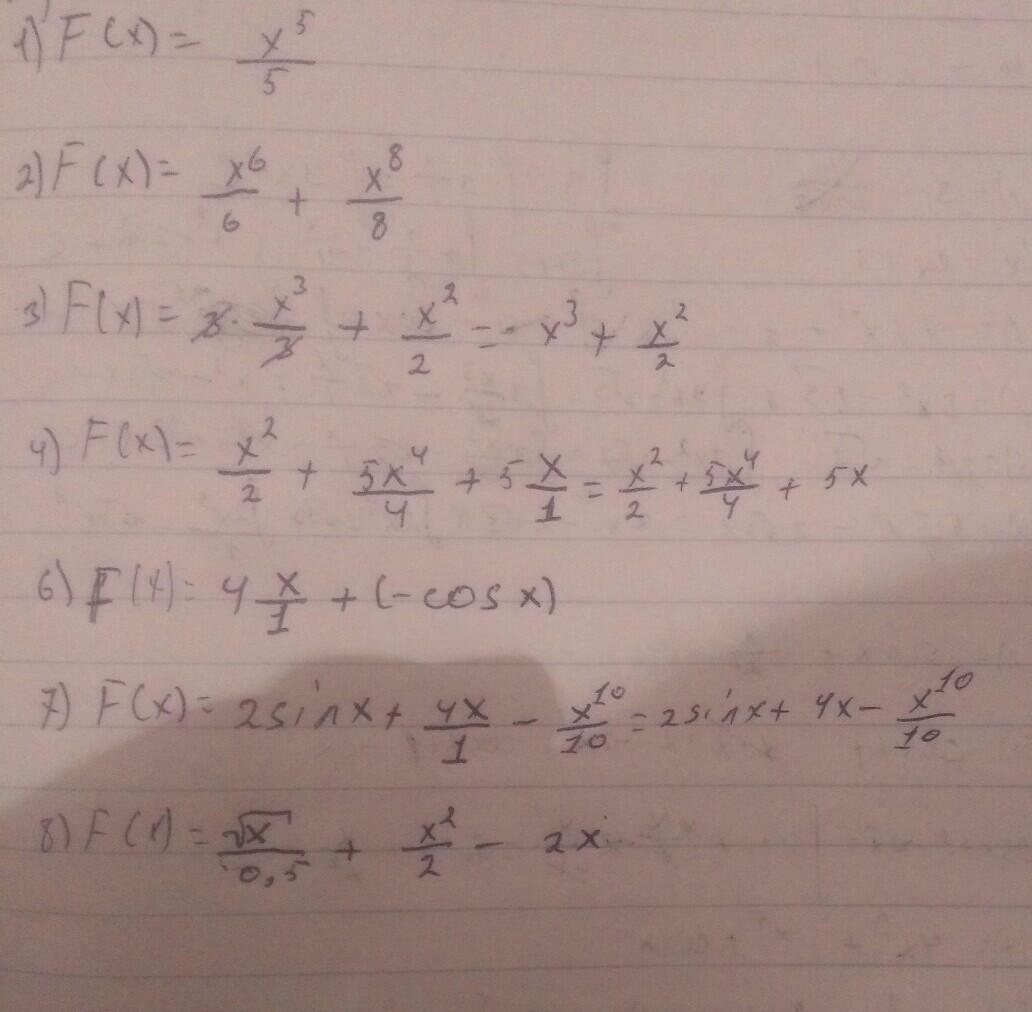 1) F(x) = x^5/5
2) F(x) = x^6/6 + x^8/8
3) F(x) = 3 · x^3/3 + x^2/2 = x^3 + x^2/2
4) F(x) = x^2/2 + 5x^4/4 + 5 x/1 = x^2/2 + 5x^4/4 + 5x
6) F(x) = 4 x/1 + (-cos x)
7) F(x) = 2sinx + 4x/1 - x^10/10 = 2sinx + 4x - x^10/10
8) F(x) = √x/0,5 + x^2/2 - 2x